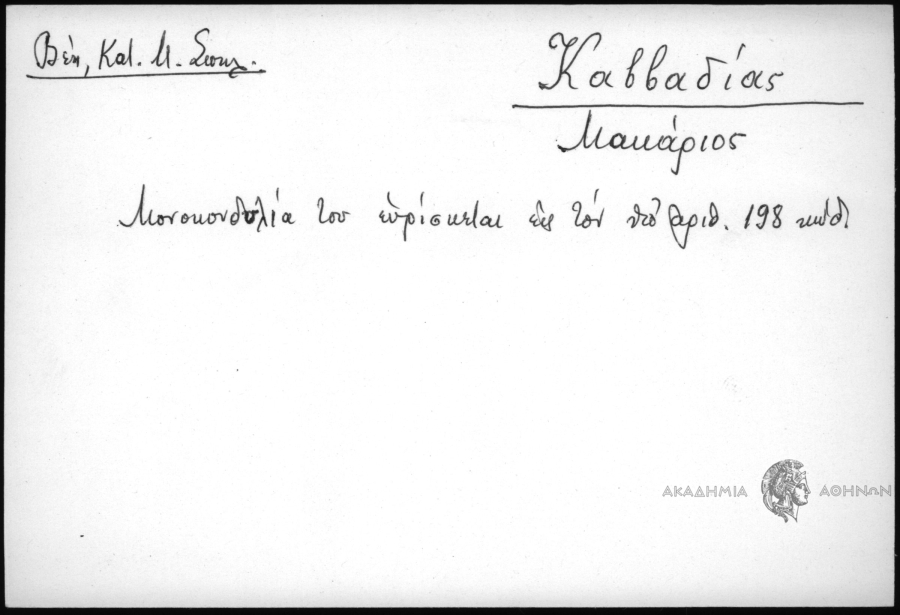 Βέη, Κατ. Μ. Σισαν.
Καββαδίας
Μακάριος
Μονοκονδυλία του εὑρίσκεται εἰς τόν ὑπ' ἀριθ. 198 κώδ.
ΑΚΑΔΗΜΙΑ ΑΘΗΝΩΝ